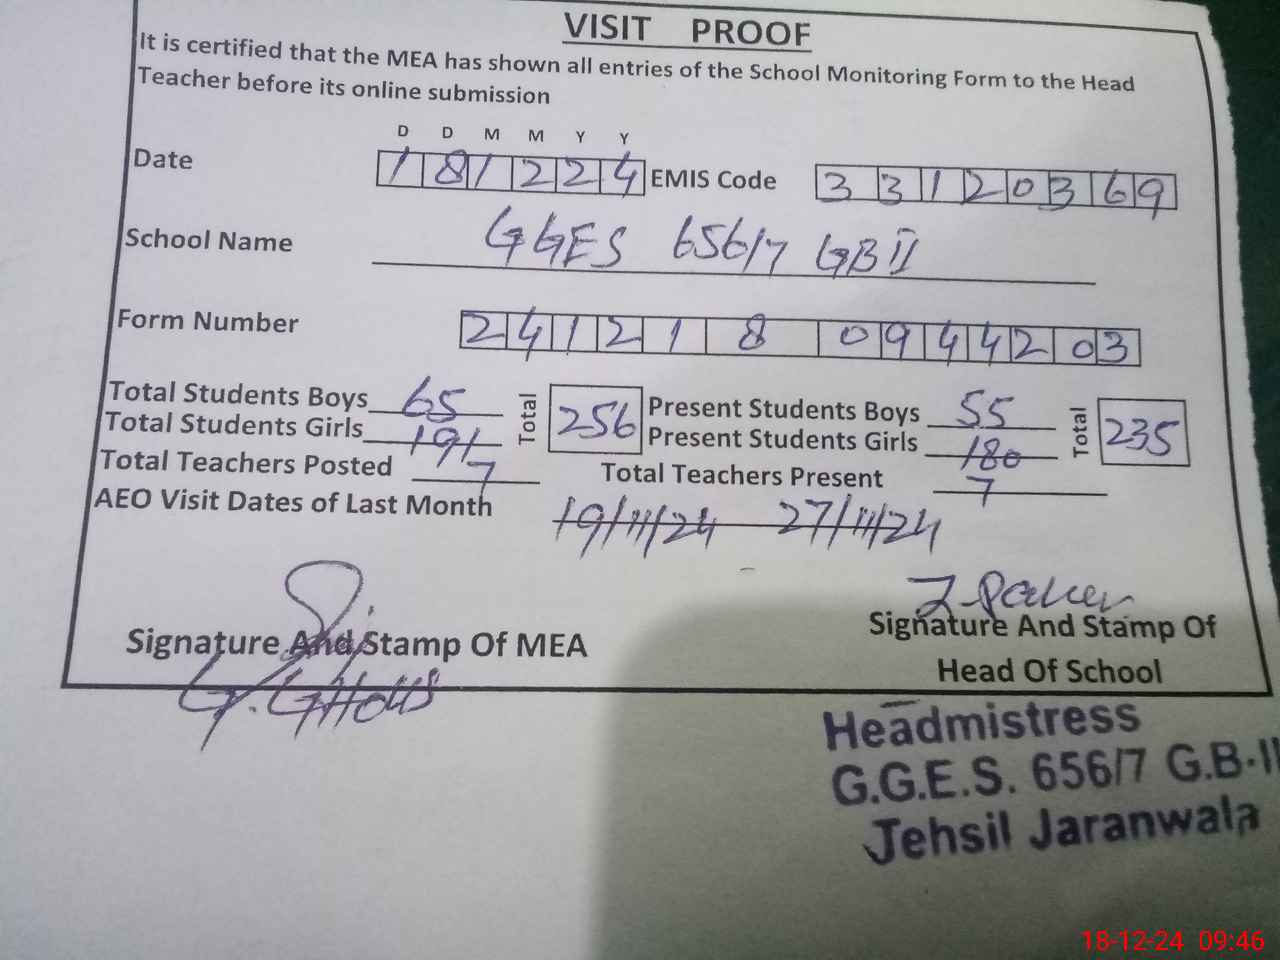 VISIT PROOF
It is certified that the MEA has shown all entries of the School Monitoring Form to the Head
Teacher before its online submission
D D M M Y Y
Date 181224 EMIS Code 33120369
School Name GGES 656/7 GB II
Form Number 2412180944203
Total Students Boys 65 Total 256 Present Students Boys 55 Total 235
Total Students Girls 191 Present Students Girls 180
Total Teachers Posted 7 Total Teachers Present 7
AEO Visit Dates of Last Month 19/11/24 27/11/24
Signature And Stamp Of MEA
Signature And Stamp Of
Head Of School
Headmistress
G.G.E.S. 656/7 G.B-II
Jehsil Jaranwala
18-12-24 09:46